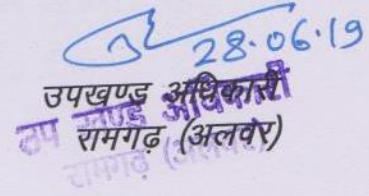 28.06.19
उपखण्ड अधिकारी
रामगढ़ (अलवर)
उप खण्ड अधिकारी
रामगढ़ (अलवर)